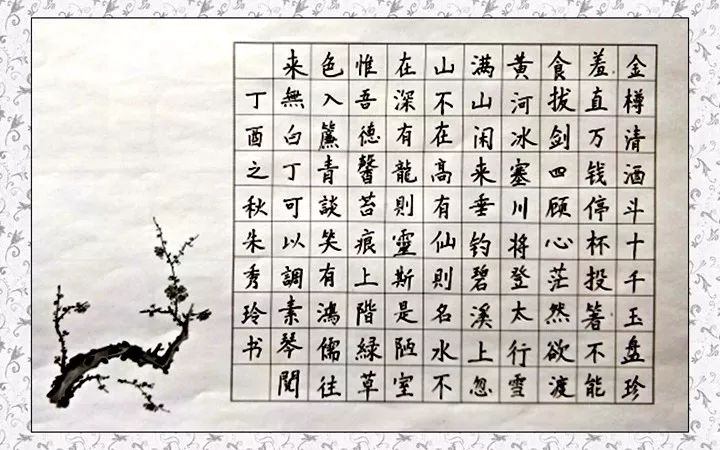 金樽清酒斗十千玉盘珍
羞直万钱停杯投箸不能
食拔剑四顾心茫然欲渡
黄河冰塞川将登太行雪
满山闲来垂钓碧溪上忽
山不在高有仙則名水不
在深有龍則靈斯是陋室
惟吾德馨苔痕上階緑草
色入簾青談笑有鴻儒往
来無白丁可以調素琴閲
丁酉之秋朱秀玲书